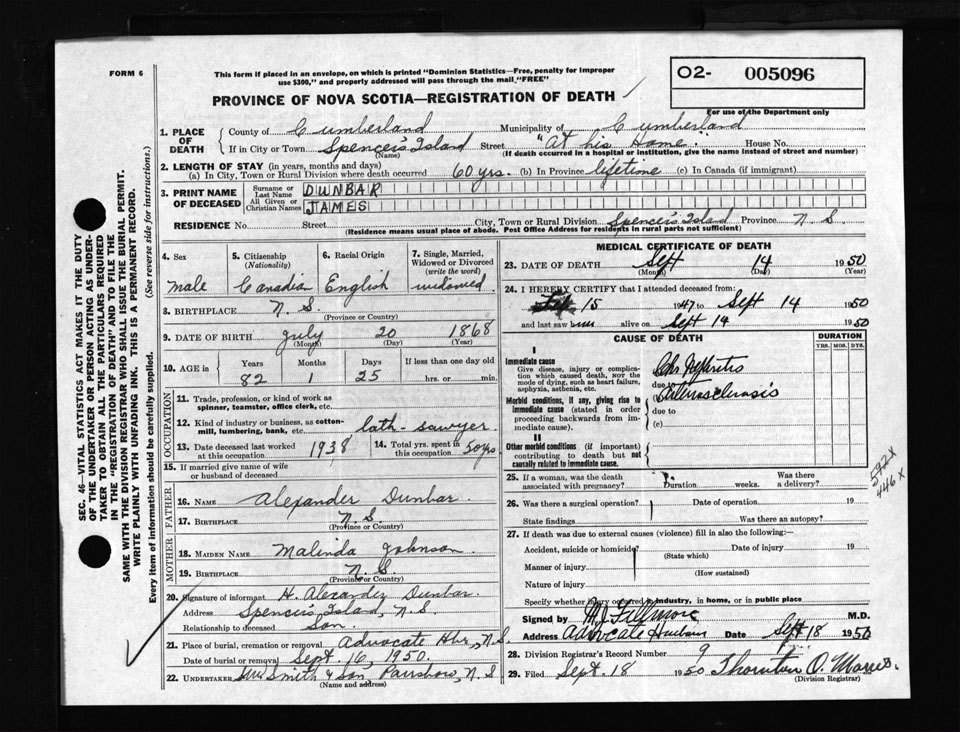 FORM 6
This form if placed in an envelope, on which is printed "Dominion Statistics—Free, penalty for improper
use $300," and properly addressed will pass through the mail "FREE"
O2- 005096
PROVINCE OF NOVA SCOTIA—REGISTRATION OF DEATH
For use of the Department only
1. PLACE OF DEATH
County of Cumberland Municipality of Cumberland
If in City or Town Spencer's Island Street "At his Home" House No.
(Name) (If death occurred in a hospital or institution, give the name instead of street and number)
2. LENGTH OF STAY (in years, months and days)
(a) In City, Town or Rural Division where death occurred 60 yrs. (b) In Province lifetime (c) In Canada (if immigrant)
3. PRINT NAME OF DECEASED
Surname or Last Name DUNBAR
All Given or Christian Names JAMES
RESIDENCE No. Street City, Town or Rural Division Spencer's Island Province N. S.
(Residence means usual place of abode. Post Office Address for residents in rural parts not sufficient)
4. Sex
male
5. Citizenship (Nationality)
Canadian
6. Racial Origin
English
7. Single, Married, Widowed or Divorced (write the word)
widowed
8. BIRTHPLACE N. S.
(Province or Country)
9. DATE OF BIRTH July 20 1868
(Month) (Day) (Year)
10. AGE in Years Months Days If less than one day old
82 1 25 hrs. or min.
OCCUPATION
11. Trade, profession, or kind of work as spinner, teamster, office clerk, etc.
12. Kind of industry or business, as cotton-mill, lumbering, bank, etc. lath-sawyer
13. Date deceased last worked at this occupation 1938
14. Total yrs. spent in this occupation 50 yrs
15. If married give name of wife or husband of deceased
FATHER
16. NAME Alexander Dunbar
17. BIRTHPLACE N. S.
(Province or Country)
MOTHER
18. MAIDEN NAME Malinda Johnson
19. BIRTHPLACE N. S.
(Province or Country)
20. Signature of informant H. Alexander Dunbar
Address Spencer's Island, N. S.
Relationship to deceased Son.
21. Place of burial, cremation or removal Advocate Hbr, N. S.
Date of burial or removal Sept. 16, 1950.
22. UNDERTAKER Smith & Son, Parrsboro, N. S
(Name and address)
MEDICAL CERTIFICATE OF DEATH
23. DATE OF DEATH Sept 14 1950
(Month) (Day) (Year)
24. I HEREBY CERTIFY that I attended deceased from:
15 1947 to Sept 14 1950
and last saw him alive on Sept 14 1950
CAUSE OF DEATH
DURATION
YRS. MOS. DYS.
I
Immediate cause
Give disease, injury or complication which caused death, NOT the mode of dying, such as heart failure, asphyxia, asthenia, etc.
Chr Nephritis
due to
Arteriosclerosis
Morbid conditions, if any, giving rise to immediate cause (stated in order proceeding backwards from immediate cause).
due to
(c)
II
Other morbid conditions (if important) contributing to death but not causally related to immediate cause.
592 X
446 X
25. If a woman, was the death associated with pregnancy? Duration weeks. Was there a delivery?
26. Was there a surgical operation? Date of operation 19
State findings Was there an autopsy?
27. If death was due to external causes (violence) fill in also the following:—
Accident, suicide or homicide? Date of injury 19
(State which)
Manner of injury
(How sustained)
Nature of injury
Specify whether injury occurred in industry, in home, or in public place
Signed by M. J. Fillmore M.D.
Address Advocate Harbour Date Sept 18 1950
28. Division Registrar's Record Number 9
29. Filed Sept. 18 1950 Thornton O. Morris.
(Division Registrar)
SEC. 46—VITAL STATISTICS ACT MAKES IT THE DUTY
OF THE UNDERTAKER OR PERSON ACTING AS UNDER-
TAKER TO OBTAIN ALL THE PARTICULARS REQUIRED
IN THE "REGISTRATION OF DEATH" AND TO FILE THE
SAME WITH THE DIVISION REGISTRAR WHO SHALL ISSUE THE BURIAL PERMIT.
WRITE PLAINLY WITH UNFADING INK. THIS IS A PERMANENT RECORD.
Every item of information should be carefully supplied. (See reverse side for instructions.)